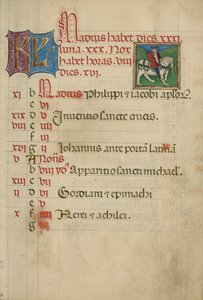 KL Madius habet dies. xxxi
luna. xxx. Nox
habet horas. viii
dies. xvi.
xi b Madius Philippi et iacobi apłorꝫ.
c
xix d v Inventio sancte crucis.
viii e iiii
f iii
xvi g ii Johannis ante portā latinā
v A Nonis
b viii yd' Apparitio sancti michael'.
xiii c vii
ii d vi Gordiani et epimachi
e v
x f iiii Nerei et achilei.
g iii